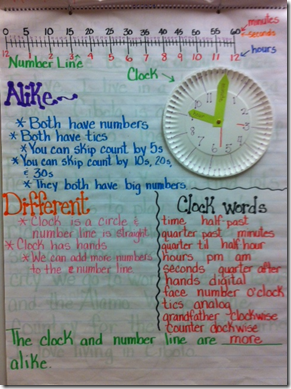 0 5 10 15 20 25 30 35 40 45 50 55 60 minutes
seconds
12 1 2 3 4 5 6 7 8 9 10 11 12 hours
Number Line
Clock
Alike
* Both have numbers
* Both have tics
* You can skip count by 5s
* You can skip count by 10s, 20s,
& 30s
* They both have big numbers
Different
* Clock is a circle &
number line is straight.
* Clock has hands
* We can add more numbers
to the # number line
Clock words
time half past
quarter past minutes
quarter til half hour
hours pm am
seconds quarter after
hands digital
face number o'clock
tics analog
grandfather clockwise
counter clockwise
The clock and number line are more
alike.